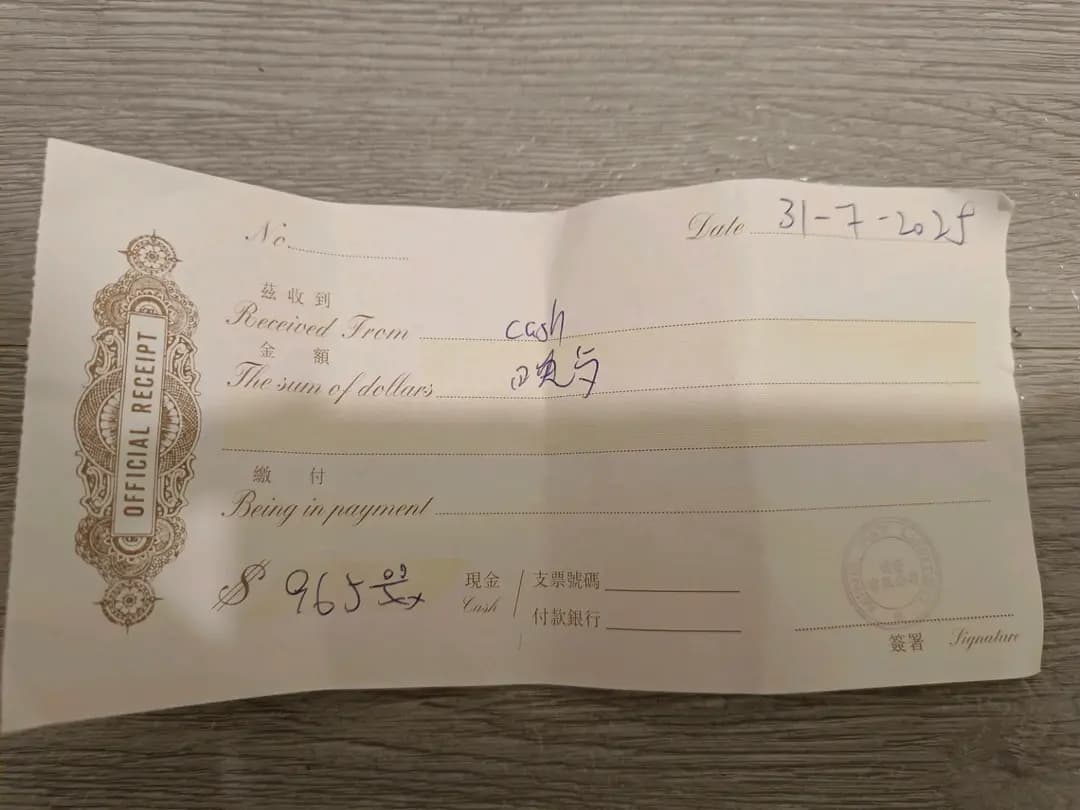 OFFICIAL RECEIPT
No
Date 31-7-2025
茲收到
Received From cash
金額
The sum of dollars
繳付
Being in payment
$ 965 00/xx
現金
Cash
支票號碼
付款銀行
簽署 Signature